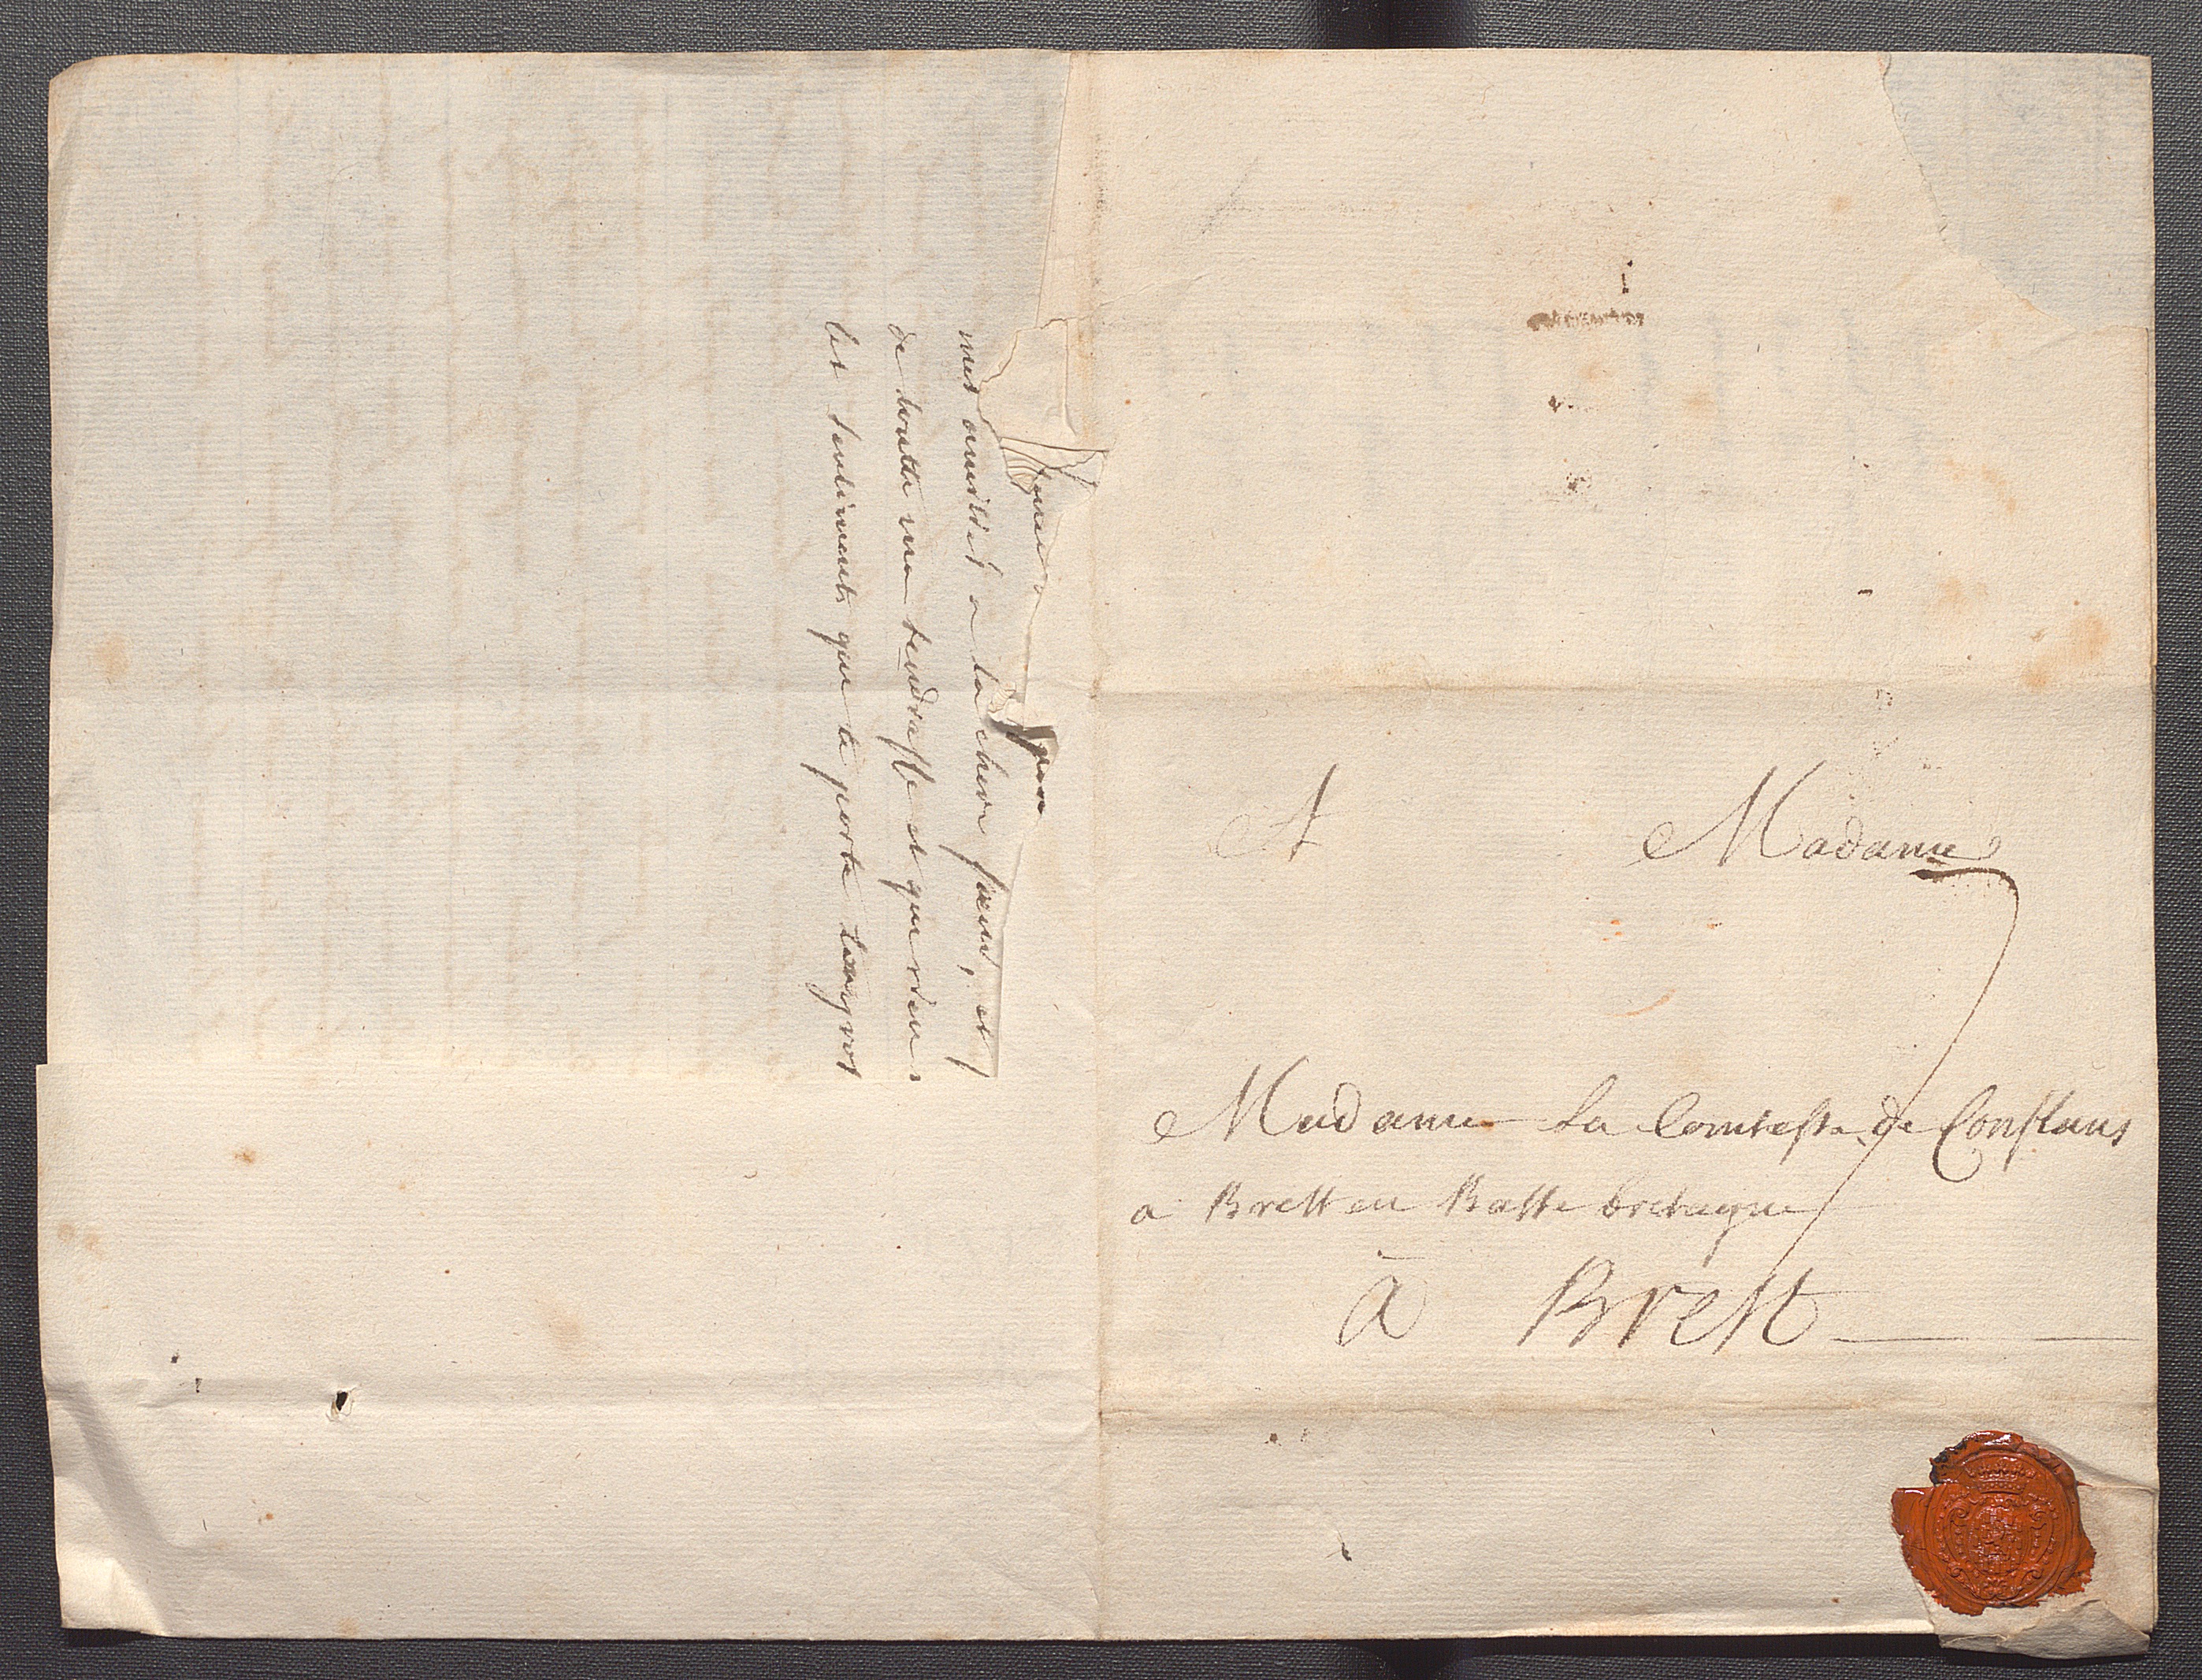 mes amitiés a ta chere sœur, et
de toutte ma tendresse et que rien
les sentiments que te porte ton gros
A Madame
Madame la Comtesse de Conflans
a Brest en Basse bretagne
à Brest